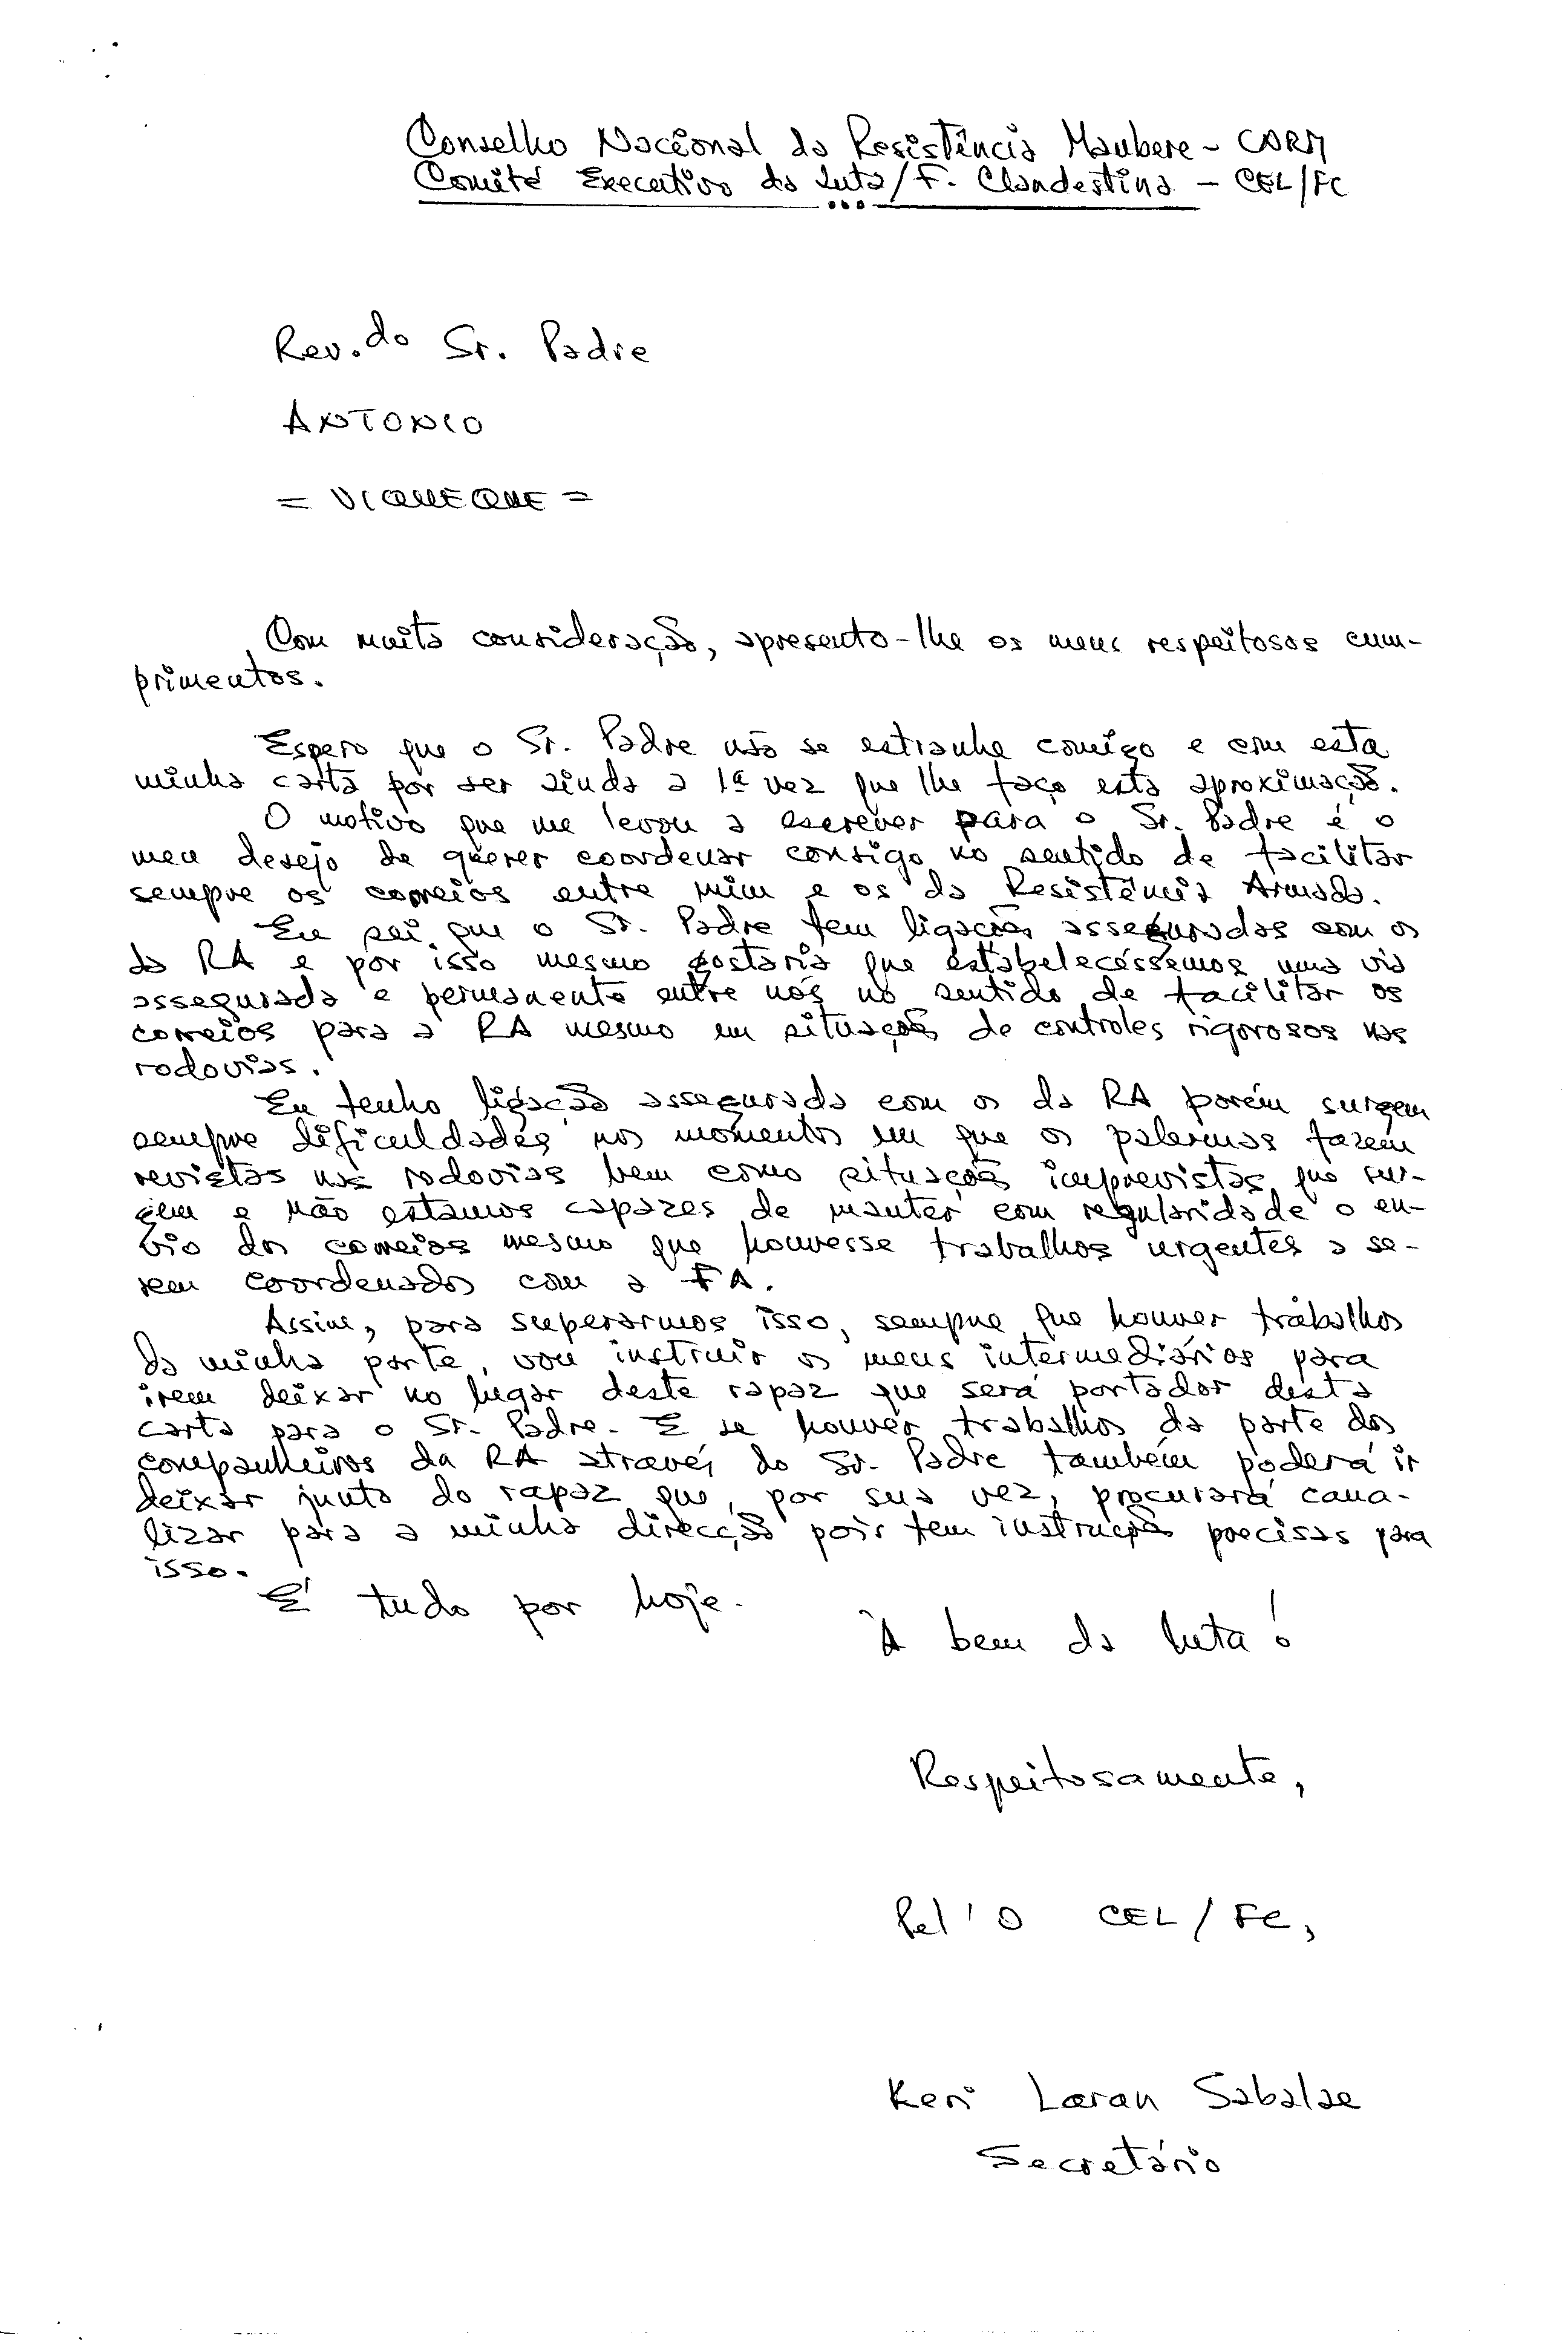 Conselho Nacional da Resistência Maubere - CNRM
Comité Executivo da Luta/F. Clandestina - CEL/FC
Rev.do Sr. Padre
ANTONIO
= VIQUEQUE =
Com muita consideração, apresento-lhe os meus respeitosos cum-
primentos.
Espero que o Sr. Padre não se estranhe comigo e com esta
minha carta por ser ainda a 1ª vez que lhe faço esta aproximação.
O motivo que me levou a escrever para o Sr. Padre é o
meu desejo de querer coordenar consigo no sentido de facilitar
sempre os correios entre mim e os da Resistência Armada.
Eu sei que o Sr. Padre tem ligações asseguradas com os
da RA e por isso mesmo gostaria que estabelecêssemos uma via
assegurada e permanente entre nós no sentido de facilitar os
correios para a RA mesmo em situações de controles rigorosos nas
rodovias.
Eu tenho ligação assegurada com os da RA porém surgem
sempre dificuldades nos momentos em que os palermas fazem
revistas nas rodovias bem como situações imprevistas que sur-
gem e não estamos capazes de manter com regularidade o en-
vio dos correios mesmo que houvesse trabalhos urgentes a se-
rem coordenados com a FA.
Assim, para superarmos isso, sempre que houver trabalhos
da minha parte, vou instruir os meus intermediários para
irem deixar no lugar deste rapaz que será portador desta
carta para o Sr. Padre. E se houver trabalhos da parte dos
companheiros da RA através do Sr. Padre também poderá ir
deixar junto do rapaz que, por sua vez, procurará cana-
lizar para a minha direcção pois tem instruções precisas para
isso.
É tudo por hoje.
À bem da luta!
Respeitosamente,
Pel'O CEL/FC,
Keri Laran Sabalae
Secretário